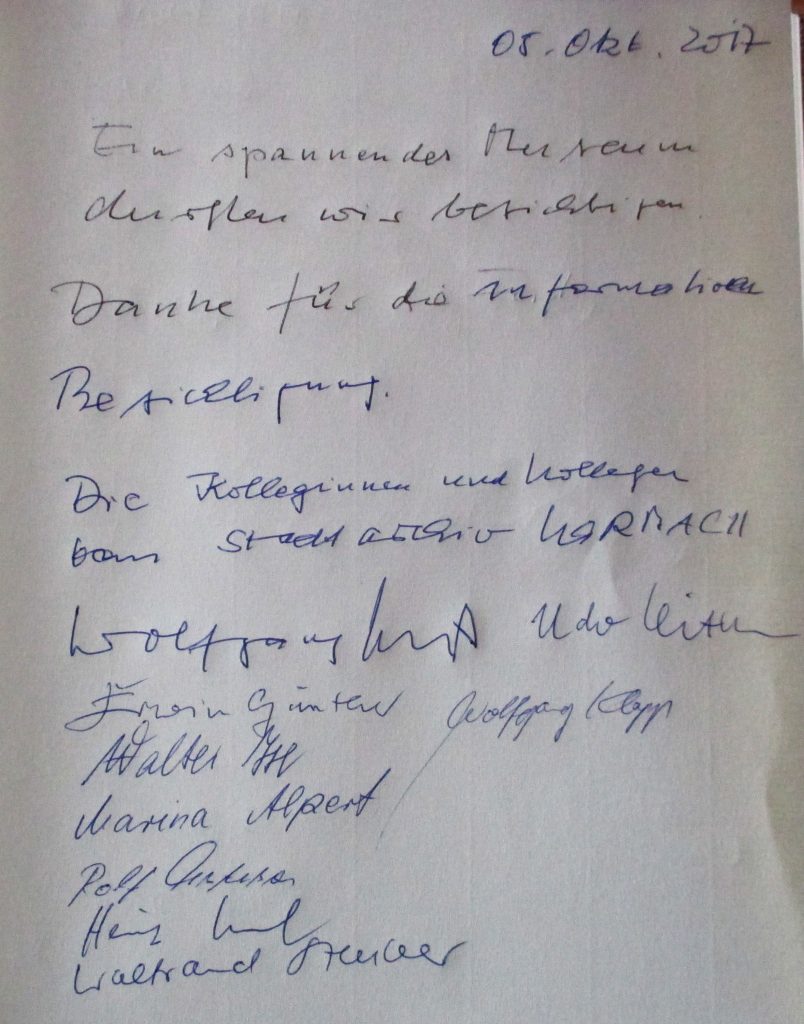 05. Okt. 2017
Ein spannendes Museum
durften wir besichtigen.
Danke für die Information
Besichtigung.
Die Kolleginnen und Kollegen
vom Stadtarchiv
Wolfgang Udo
Erwin Günther Wolfgang Klopp
Walter
Marina Alpert
Rolf
Heinz
Waltraud